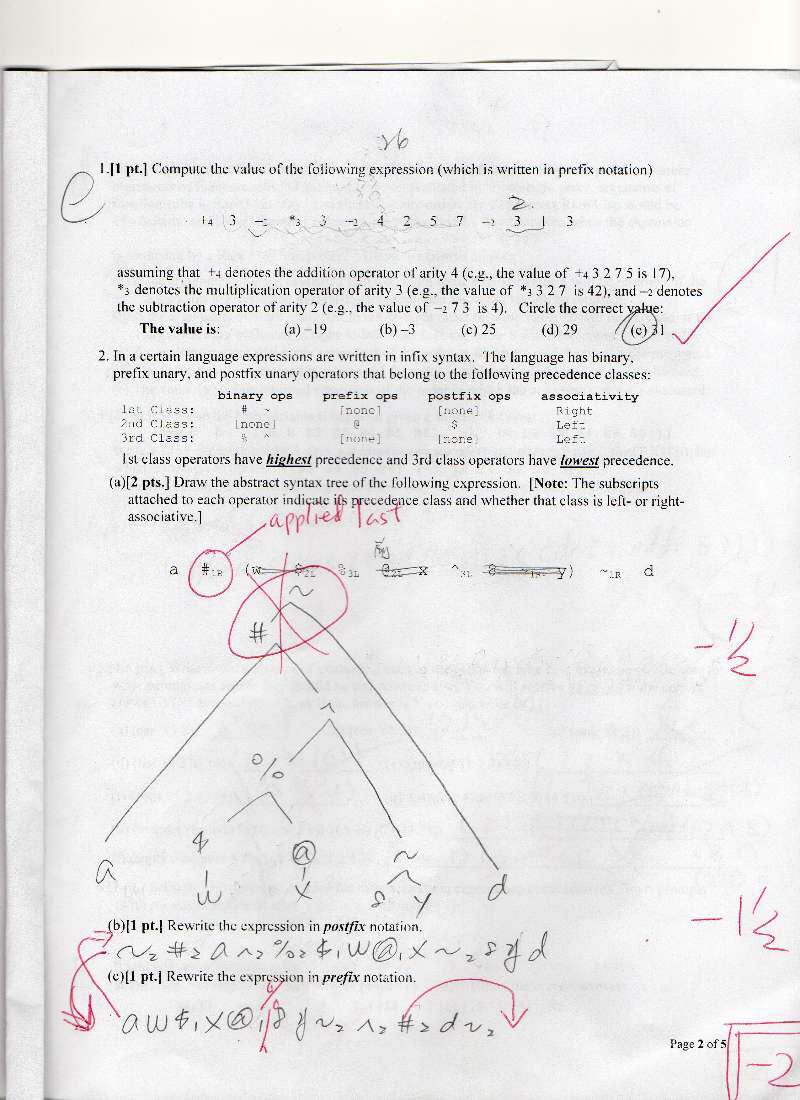 26
e
1.[1 pt.] Compute the value of the following expression (which is written in prefix notation)
2
+4 3 −2 *3 3 −2 4 2 5 7 −2 3 1 3
assuming that +4 denotes the addition operator of arity 4 (e.g., the value of +4 3 2 7 5 is 17),
*3 denotes the multiplication operator of arity 3 (e.g., the value of *3 3 2 7 is 42), and −2 denotes
the subtraction operator of arity 2 (e.g., the value of −2 7 3 is 4). Circle the correct value:
The value is: (a) −19 (b) −3 (c) 25 (d) 29 (e) 31
2. In a certain language expressions are written in infix syntax. The language has binary,
prefix unary, and postfix unary operators that belong to the following precedence classes:
binary ops prefix ops postfix ops associativity
1st Class: # ~ [none] [none] Right
2nd Class: [none] @ $ Left
3rd Class: % ^ [none] [none] Left
1st class operators have highest precedence and 3rd class operators have lowest precedence.
(a)[2 pts.] Draw the abstract syntax tree of the following expression. [Note: The subscripts
attached to each operator indicate its precedence class and whether that class is left- or right-
associative.]
applied last
a #1R (w $2L %3L @2L x ^3L 8 ~1R y) ~1R d
~
#
-1½
^
%
$ @ ~
a w x 8 y d
(b)[1 pt.] Rewrite the expression in postfix notation.
-1½
~2 #2 a ^2 %2 $1 w @1 x ~2 8 y d
(c)[1 pt.] Rewrite the expression in prefix notation.
a w $1 x @1 8 y ~2 ^2 #2 d ~2
Page 2 of 5
-2